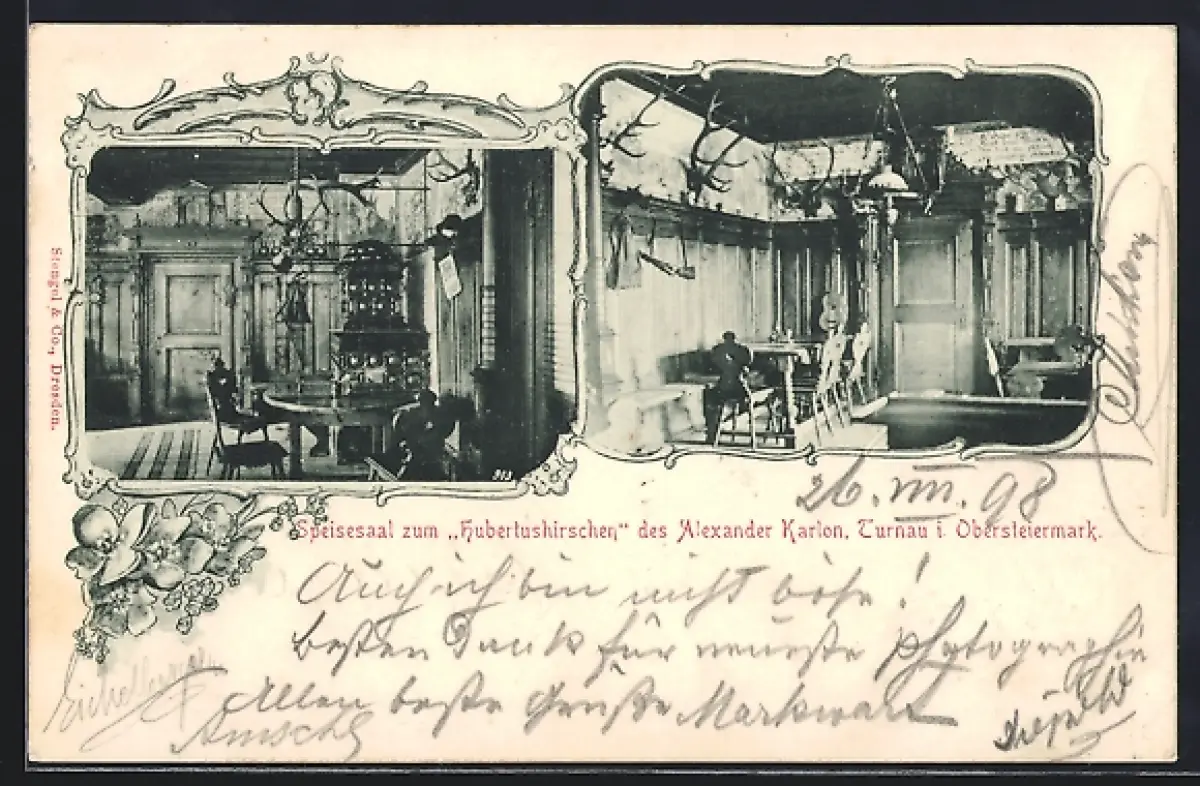 Stengel & Co., Dresden.
26. VIII. 98
Speisesaal zum „Hubertushirschen" des Alexander Karlon, Turnau i. Obersteiermark.
Auch ich bin nicht böse!
Besten Dank für neueste Photographie
Allen beste Grüße Markwart